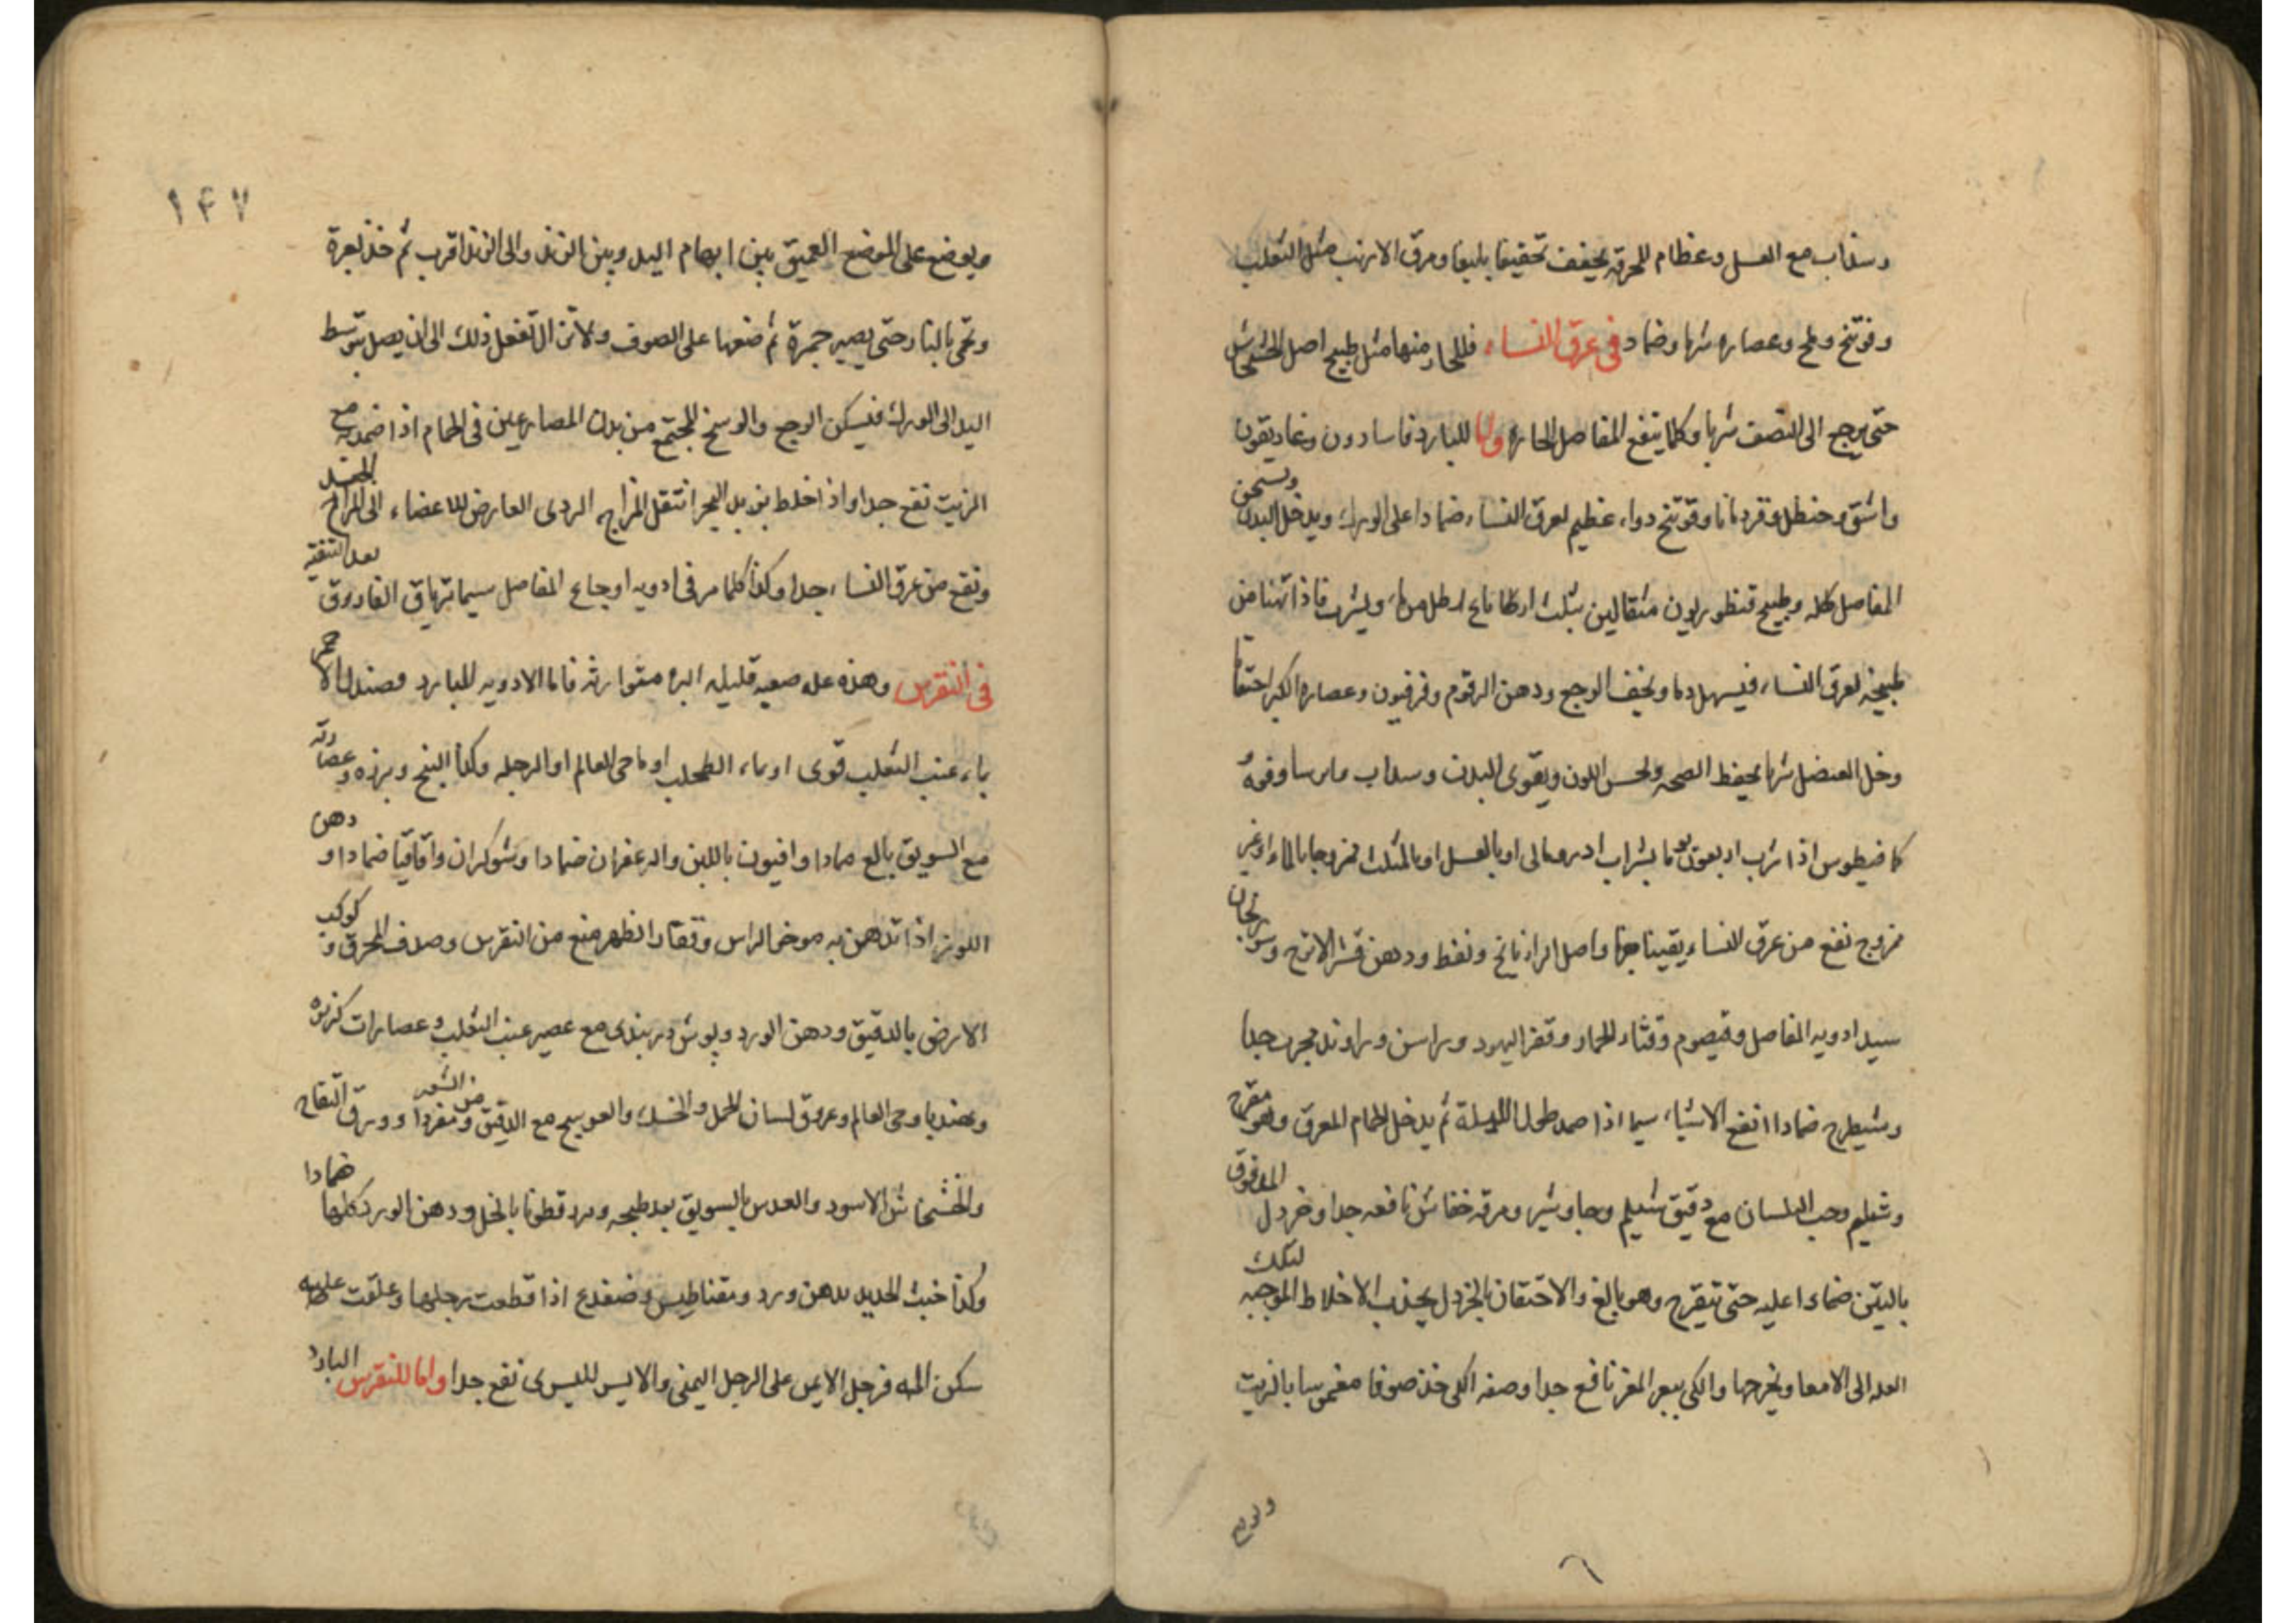 وسذاب مع العسل وعظام المحرقه يجفف تجفيفا بليغا ومرق الارنب مثل الثعلب
وفوتنج وملح وعصاره شربا وضماد في عرق النساء فللحار منها مثل طبيخ اصل الخشخاش
حتى يرجع الى النصف شربا وكلما ينفع المفاصل الحاره واما للبارد فاسارون وغاريقون
واشق وحنظل وقردمانا وفوتنج دواء عظيم لعرق النساء ضمادا على الورك ويدخل البدن ويسخن
المفاصل كله وطبيخ قنطوريون مثقالين بثلث ارطل ماء ويشرب فاذا
طبيخه لعرق النساء فيسهل دما ويخفف الوجع ودهن الزقوم وفرفيون وعصاره الكبر احتقانا
وخل العنصل شربا يحفظ الصحه ويحسن اللون ويقوى البدن وسداب
كمافيطوس اذا شرب اربعون يوما بشراب ادرومالى او بالعسل او بالمثلث ممزوجا بالماء او غير
ممزوج نفع من عرق النساء يقينا واصل الرازيانج ونفط ودهن قشر الاترج وسورنجان
سيد ادويه المفاصل وقيصوم وقثاء الحمار وقفر اليهود وراسن وراوند مجرب جدا
وشيطرج ضمادا انفع الاشياء سيما اذا ضمد طول الليلة ثم يدخل الحمام المعرق وهو مقرح
وشيلم وحب البلسان مع دقيق شيلم وجاوشير ومرقه خفاش نافعه جدا وخردل المدقوق
بالتين ضمادا عليه حتى يتقرح وهو بالغ والاحتقان بالخردل يجذب الاخلاط الموجبه لتلك
العله الى الامعا ويخرجها والكى ببعر المعز نافع جدا وصفه الكى خذ صوفا مغموسا بالزيت
ويوضع
١٤٧
ويوضع على الموضع العميق بين ابهام اليد وبين الزند والى الزند اقرب ثم خذ بعرة
وتحمى بالنار حتى يصير جمرة ثم ضعها على الصوف ولا تزال تفعل ذلك الى ان يصل بتوسط
اليد الى الورك فيسكن الوجع والوسخ المجتمع من بدن المصارعين فى الحمام اذا ضمد به مع
الزيت نفع جدا واذا خلط بزبد البحر انتقل المزاج الردى العارض للاعضاء الى المزاج المعتدل
ونفع من عرق النساء جدا وكذا كلما مر فى ادويه اوجاع المفاصل سيما ترياق الفاروق بعد التنقيه
في النقرس وهذه عله صعبه قليله البره متوارثه فاما الادويه للبارد فصندل الاحمر
بماء عنب الثعلب قوى او بماء الطحلب او ما حى العالم او الرجله وكذا البنج وبزره وعصارته
مع السويق بالغ ضمادا وافيون باللبن والزعفران ضمادا وشوكران واقاقيا ضمادا ودهن
اللوز اذا تدهن به موخر الراس وفقار الظهر منع من النقرس وصدف المحرق وكوكب
الارض بالدقيق ودهن الورد وپوش دربندى مع عصير عنب الثعلب وعصارات كزبره
وهندبا وحى العالم وعروق لسان الحمل والخسك والعوسج مع الدقيق من الشعير ومفردا وورق التفاح
والخشخاش الاسود والعدس بالسويق بعد طبخه وبزر قطونا بالخل ودهن الورد كلها ضمادا
وكذا خبث الحديد بدهن ورد ومقناطيس وضفدع اذا قطعت رجلها وعلقت عليه
سكن المه فرجل الايمن على الرجل اليمنى والايسر لليسرى نفع جدا واما للنقرس البارد